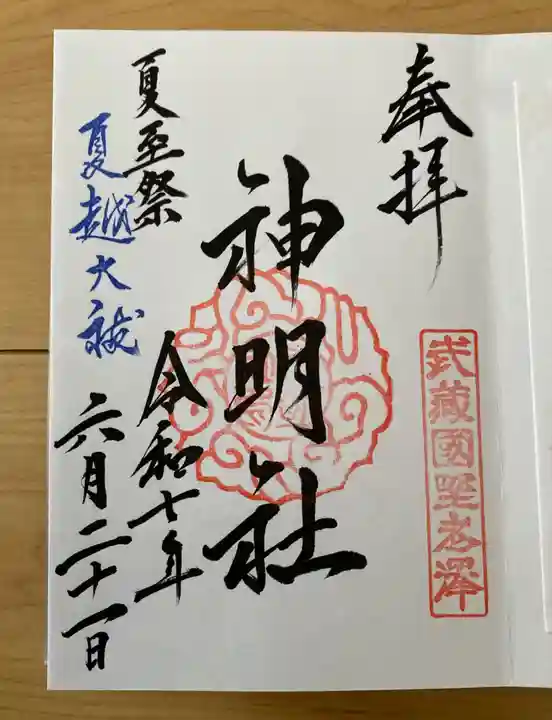 奉拝
武藏國野老澤
神明社
令和七年
六月二十一日
夏至祭
夏越大祓